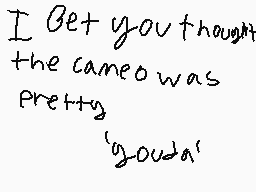 I Bet you thought
the cameo was
pretty
'gouda'